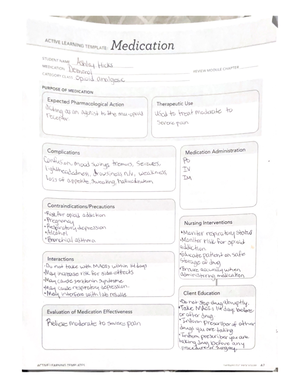 ACTIVE LEARNING TEMPLATE: Medication
STUDENT NAME
MEDICATION Demerol
REVIEW MODULE CHAPTER
CATEGORY CLASS Opioid analgesic
PURPOSE OF MEDICATION
Expected Pharmacological Action
as an agonist to the mu-opioid
receptor
Therapeutic Use
Used to treat moderate to
severe pain
Complications
Confusion, mood swings, tremors, seizures
lightheadedness, drowsiness, weakness
loss of appetite, hallucination
Medication Administration
PO
IV
IM
Contraindications/Precautions
Risk for opioid addiction
Pregnancy
Respiratory depression
Alcohol
Bronchial asthma
Nursing Interventions
Monitor respiratory status
Monitor risk for opioid
addiction
Educate patient on safe
storage of drug
when
administering medication
Interactions
Do not take with MAOIs within 14 days
May increase risk for side effects
May cause serotonin syndrome
May cause respiratory depression
May interfere with lab results
Client Education
Do not stop abruptly
Take MAOIs 14 days before
or after drug
Inform prescriber of other
drugs you are taking
Inform prescriber you are
taking drug before any
Evaluation of Medication Effectiveness
Relieve moderate to severe pain
ACTIVE LEARNING TEMPLATES